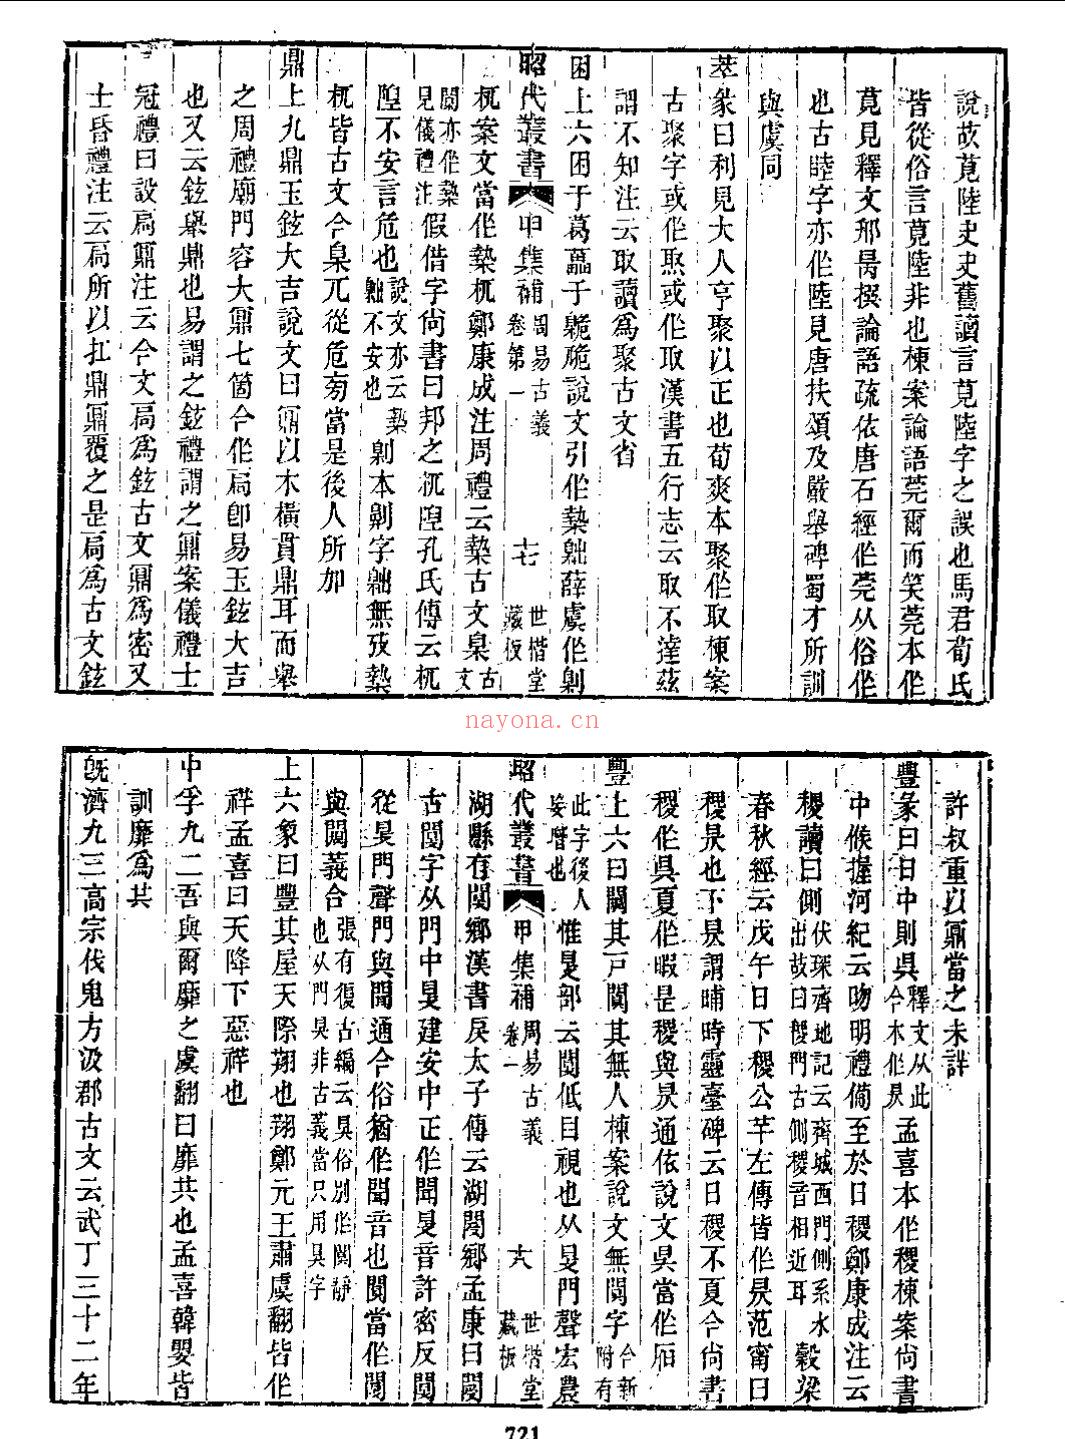 說故莧陸史史舊讀言莧陸字之誤也馬君荀氏
皆從俗言莧陸非也棟案論語莞爾而笑莞本作
莧見釋文邢昺撰論語疏依唐石經作莞从俗作
也古睦字亦作陸見唐扶頌及嚴舉碑蜀才所訓
與虞同
萃彖曰利見大人亨聚以正也荀爽本聚作取棟案
古聚字或作冣或作取漢書五行志云取不達茲
謂不知注云取讀爲聚古文省
困上六困于葛藟于臲卼說文引作槷𡰈薛虞作劓
昭代叢書 甲集補 周易古義卷第一 十七 世楷堂藏板
杌案文當作槷杌鄭康成注周禮云槷古文臬古文
闑亦作槷見儀禮注假借字尚書曰邦之杌隉孔氏傳云杌
隉不安言危也說文亦云槷𡰈不安也劓本劓字𡰈無攷槷
杌皆古文今臬兀從危旁當是後人所加
鼎上九鼎玉鉉大吉說文曰鼏以木橫貫鼎耳而舉
之周禮廟門容大鼏七箇今作扃卽易玉鉉大吉
也又云鉉舉鼎也易謂之鉉禮謂之鼏案儀禮士
冠禮曰設扃鼏注云今文扃爲鉉古文鼏爲密又
士昏禮注云扃所以扛鼎鼏覆之是扃爲古文鉉
許叔重以鼏當之未詳
豐彖曰日中則昃釋文从此今本作昃孟喜本作稷棟案尚書
中候握河紀云昒明禮備至於日稷鄭康成注云
稷讀曰側伏琛齊地記云齊城西門側系水出故曰稷門古側稷音相近耳穀梁
春秋經云戊午日下稷公羊左傳皆作昃范甯曰
稷昃也下昃謂晡時靈臺碑云日稷不夏今尚書
稷作昃夏作暇是稷與昃通依說文昃當作𣅔
豐上六曰闚其戶闃其無人棟案說文無闃字今新附有
此字後人妄增也惟旻部云閺低目視也从旻門聲宏農
昭代叢書 甲集補 周易古義卷一 十八 世楷堂藏板
湖縣有閺鄉漢書戾太子傳云湖閺鄉孟康曰閺
古閿字从門中旻建安中正作聞旻音許密反閺
從旻門聲門與聞通今俗猶作聞音也闃當作閺
與闃義合張有復古編云㚖俗別作闃靜也从門㚖非古義當只用㚖字
上六象曰豐其屋天際翔也翔鄭元王肅虞翻皆作
祥孟喜曰天降下惡祥也
中孚九二吾與爾靡之虞翻曰靡共也孟喜韓嬰皆
訓靡爲共
旣濟九三高宗伐鬼方汲郡古文云武丁三十二年
nayona.cn
721